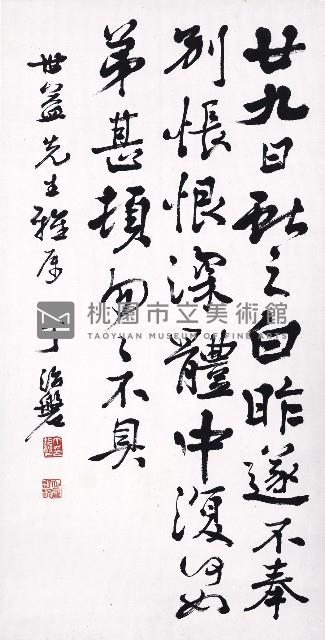 廿九日獻之白昨遂不奉
別悵恨深體中復何如
弟甚頓匆匆不具
世益先生雅属
丁治磐
桃園市立美術館
TAOYUAN MUSEUM OF FINE ARTS